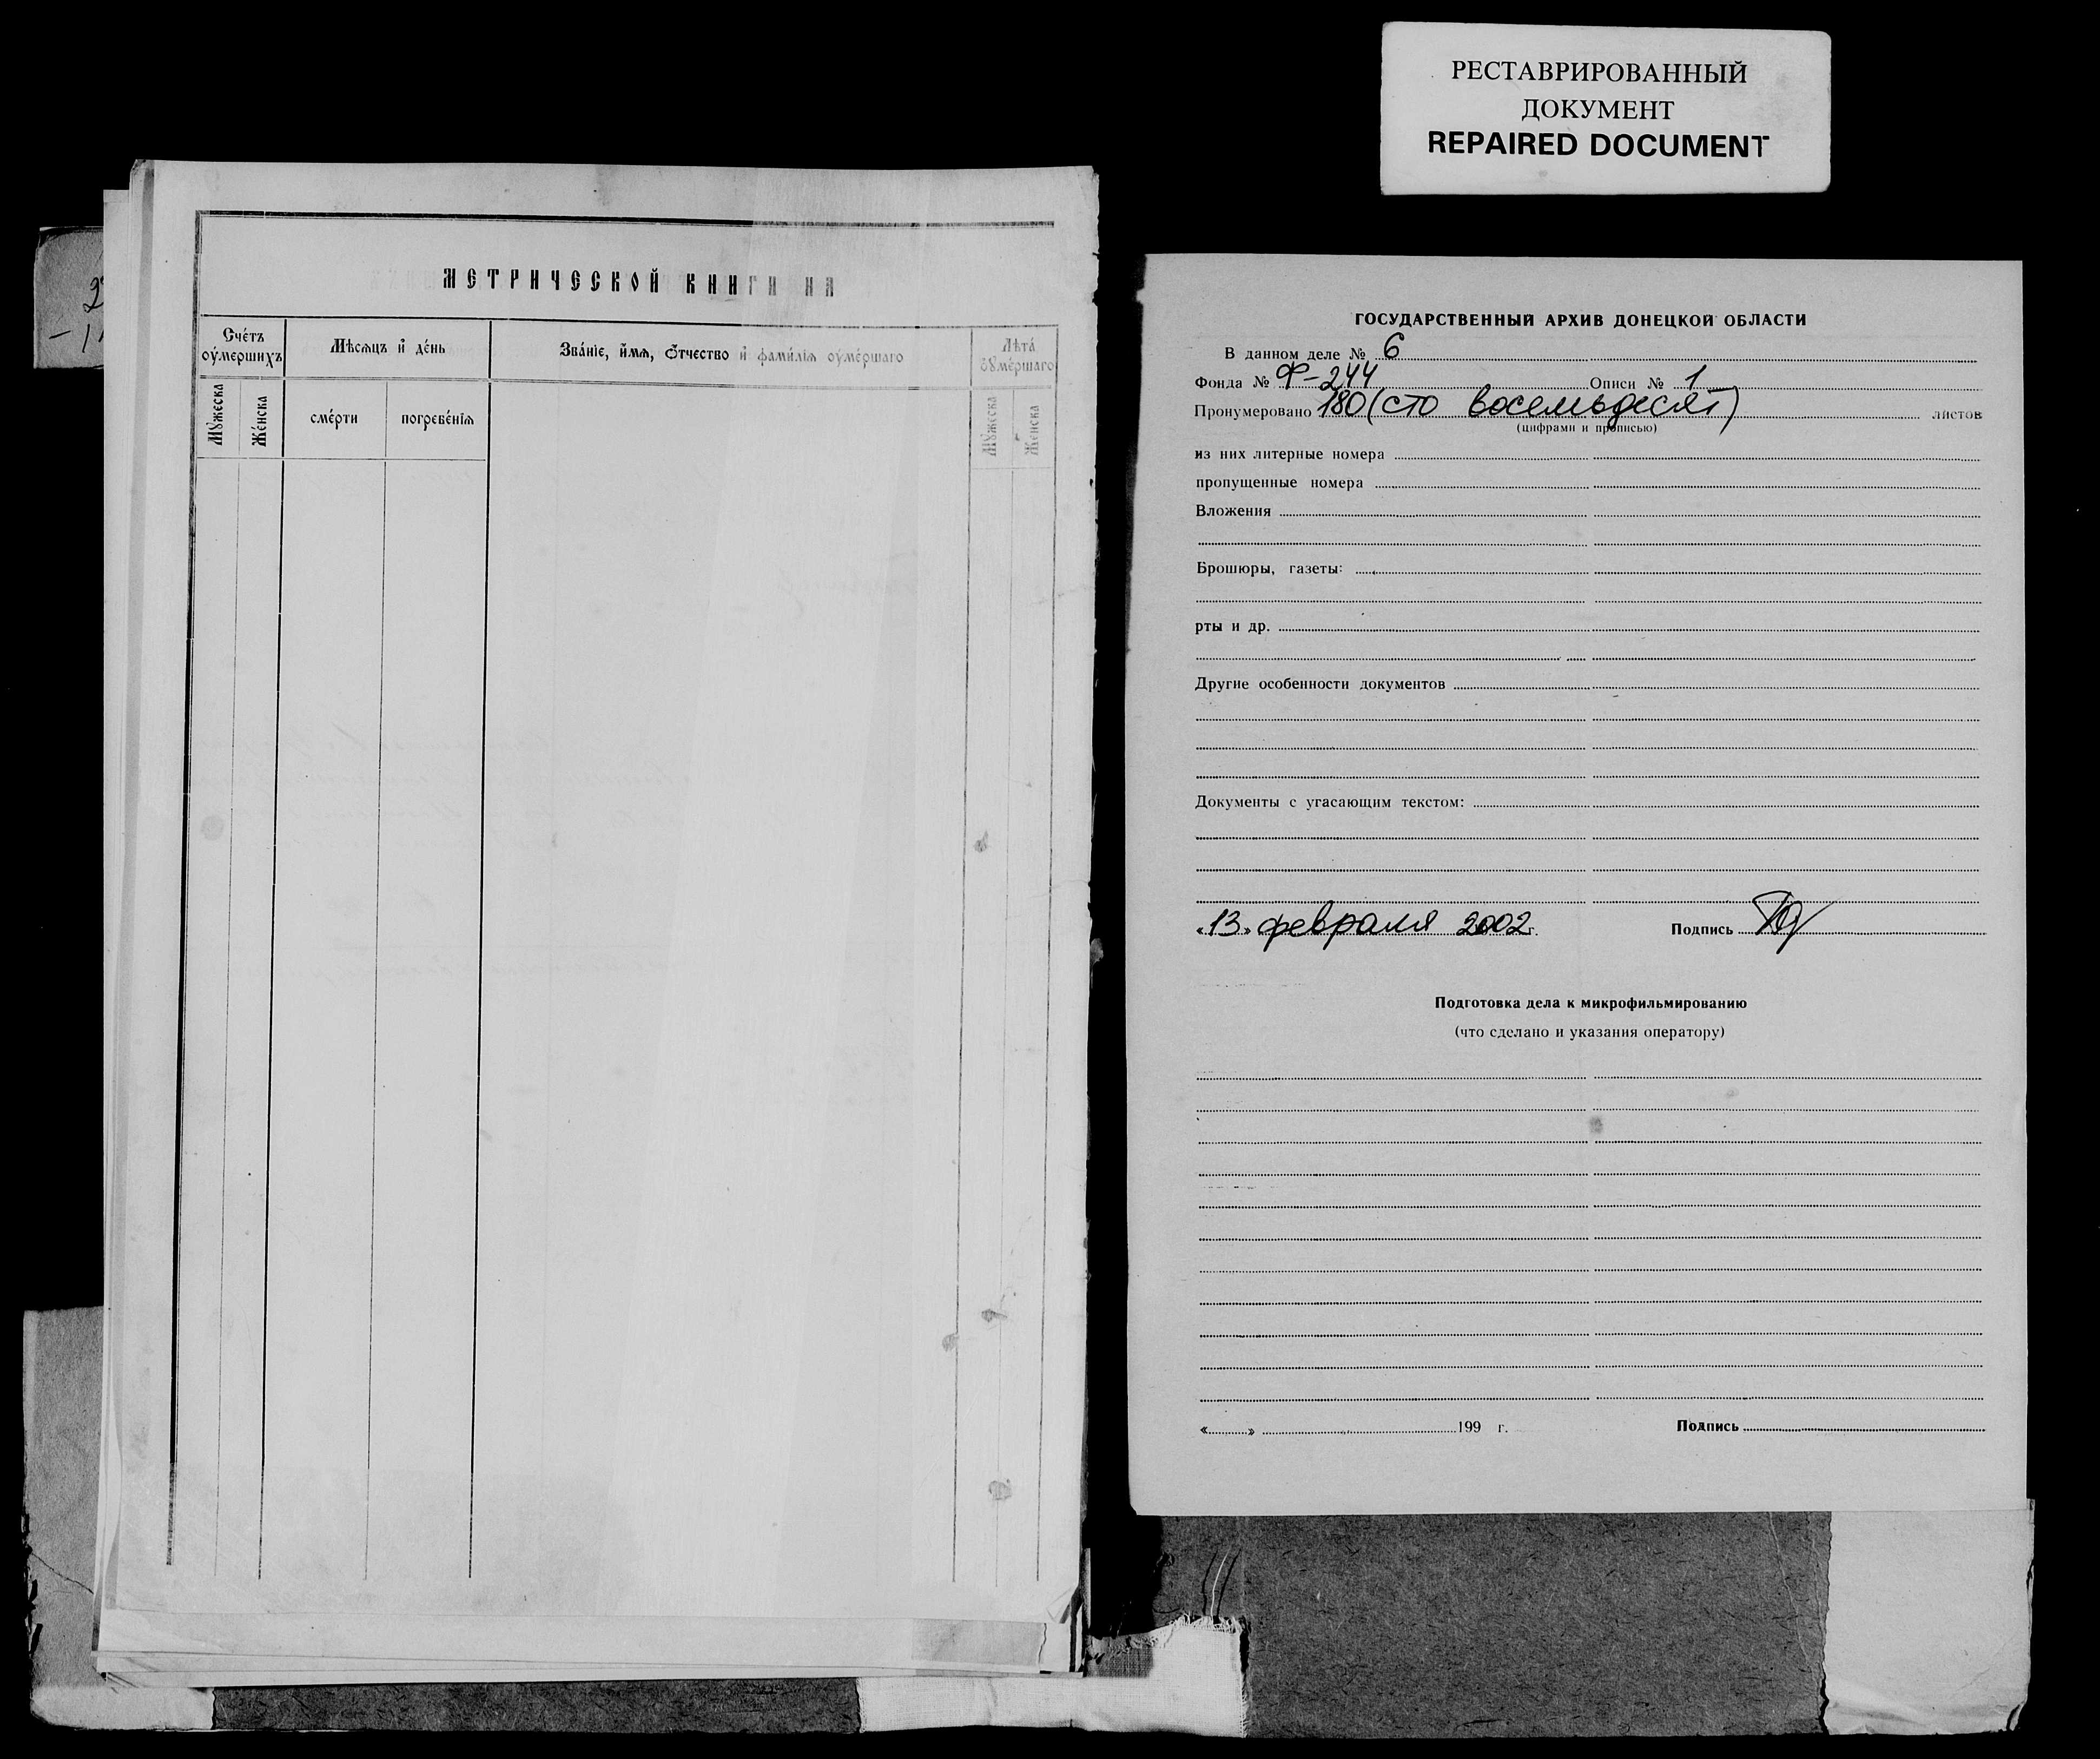 РЕСТАВРИРОВАННЫЙ
ДОКУМЕНТ
REPAIRED DOCUMENT
МЕТРИЧЕСКОЙ КНИГИ НА
Сче́тъ
оу҆ме́ршихъ
Мѣсѧцъ и҆ де́нь
Зва́нїе, и҆́мѧ, ѻ҆́тчество и҆ фами́лїѧ оу҆ме́ршаго
Лѣта̀
оу҆ме́ршаго
Мꙋ́жеска
Же́нска
сме́рти
погребе́нїѧ
Мꙋ́жеска
Же́нска
ГОСУДАРСТВЕННЫЙ АРХИВ ДОНЕЦКОЙ ОБЛАСТИ
В данном деле № 6
Фонда № Ф-244 Описи № 1
Пронумеровано 180 (сто восемьдесят) листов
(цифрами и прописью)
из них литерные номера
пропущенные номера
Вложения
Брошюры, газеты:
рты и др.
Другие особенности документов
Документы с угасающим текстом:
«13» февраля 2002 г. Подпись
Подготовка дела к микрофильмированию
(что сделано и указания оператору)
« » 199 г. Подпись